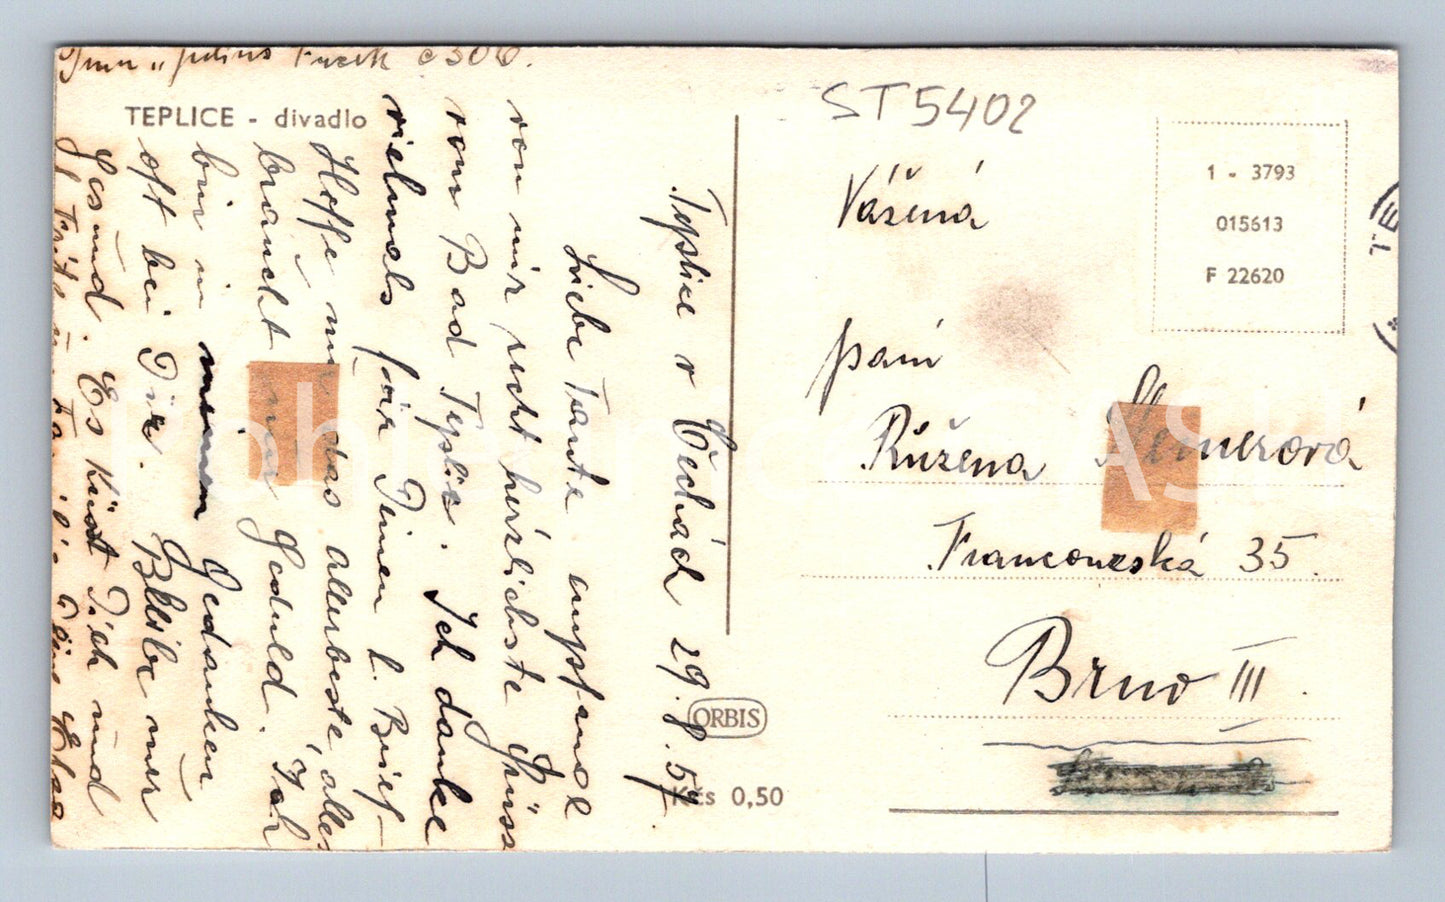 TEPLICE - divadlo
Teplice v Čechách 29.8.57.
Liebe Tante empfange
von mir recht herzlichste Grüsse
vom Bad Teplice. Ich danke
vielmals für Deinen l. Brief.
Hoffe nur das allerbeste alles
braucht nur Geduld. Ich
bin in meinen Gedanken
oft bei Dir. Bleibe nur
Gesund. Es küsst Dich und
"Julius Fučík
ST5402
1 - 3793
015613
F 22620
Vážená
paní
Růžena
Francouzská 35.
Brno III.
ORBIS
Kčs 0,50